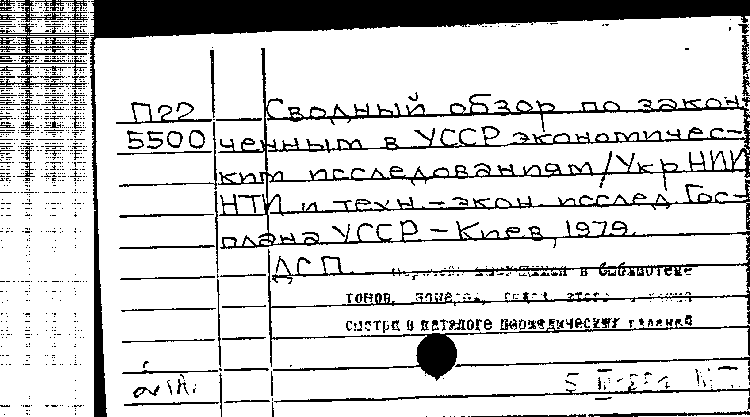 П22 Сводный обзор по закон
5500 ченным в УССР экономичес-
ким исследованиям/УкрНИИ
НТИ и техн.-экон. исслед. Гос-
плана УССР – Киев, 1979.
ДСП.
в библиотеке
томов, номеров,
смотри в каталоге периодических изданий